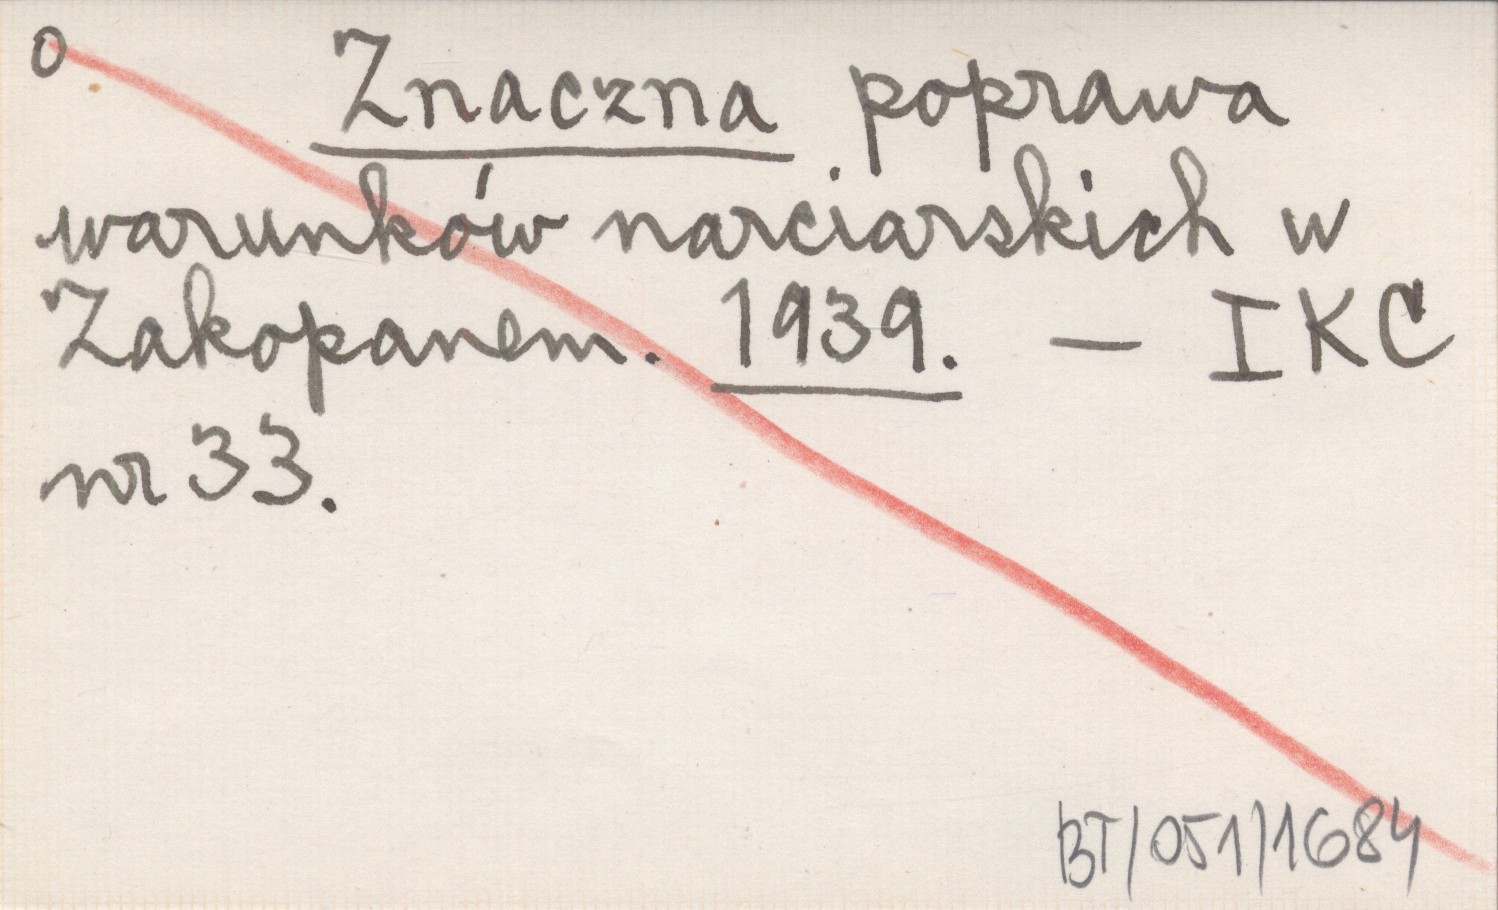 o Znaczna poprawa
warunków narciarskich w
Zakopanem. 1939. — IKC
nr 33.
BT/051/1684